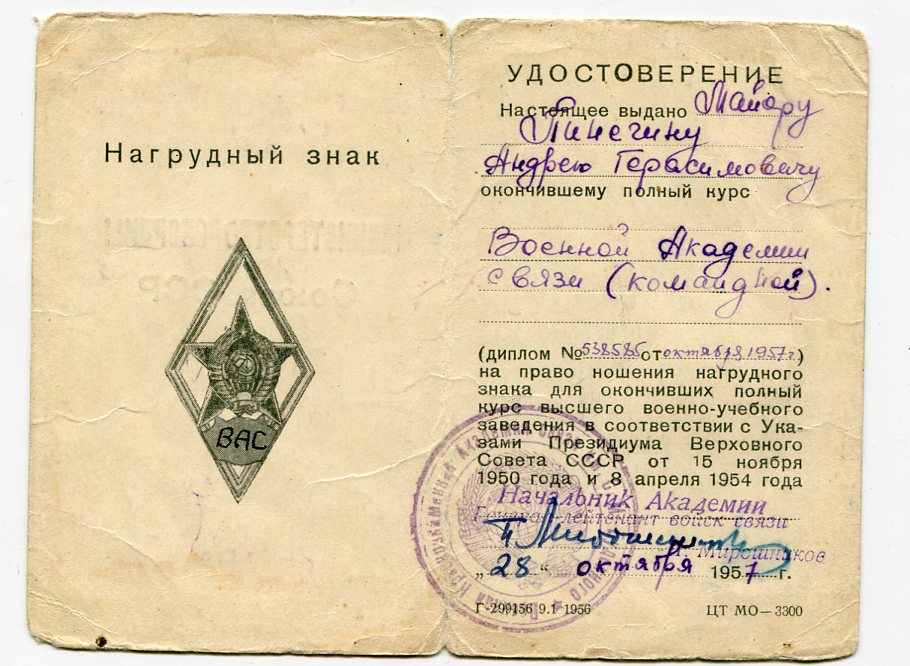 Нагрудный знак
ВАС
УДОСТОВЕРЕНИЕ
Настоящее выдано Майору
Пинегину
Андрею Герасимовичу
окончившему полный курс
Военной Академии
связи (командной).
(диплом № 538585 от октября 1957г.)
на право ношения нагрудного
знака для окончивших полный
курс высшего военно-учебного
заведения в соответствии с Ука-
зами Президиума Верховного
Совета СССР от 15 ноября
1950 года и 8 апреля 1954 года
Начальник Академии
Генерал-лейтенант войск связи
Мирошников
„28“ октября 1957 г.
Г-299156 9.1 1956
ЦТ МО—3300